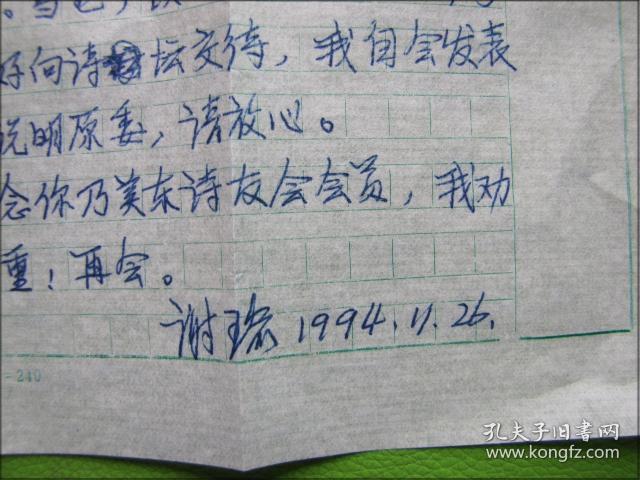 好向诗坛交待，我自会发表
说明原委，请放心。
念你乃美东诗友会会员，我劝
重！再会。
谢 1994.11.26.
-240
孔夫子旧书网
www.kongfz.com